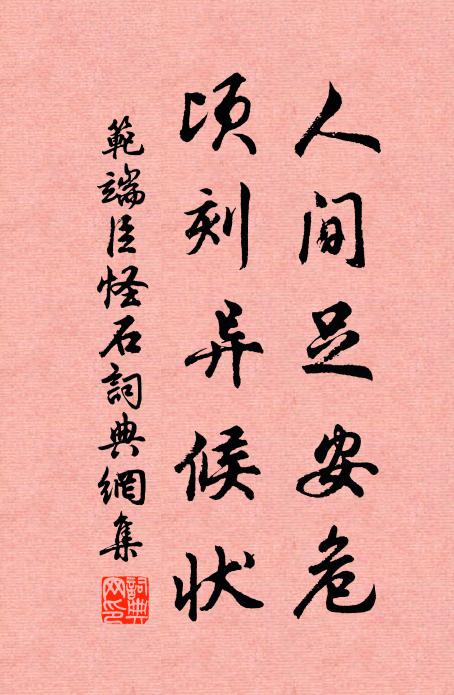 人间足安危
顷刻异候状
範端臣怪石詞典網集
詞典
网印